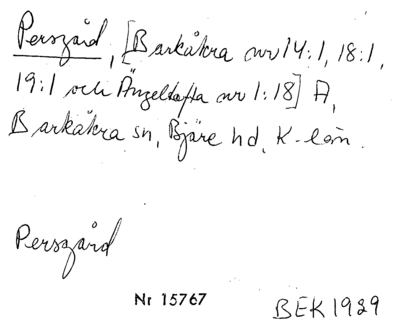 Persgård, [Barkåkra nr 14:1, 18:1,
19:1 och Ängeltofta nr 1:18] A,
Barkåkra sn, Bjäre hd, K-län.
Persgård
Nr 15767
BEK 1929